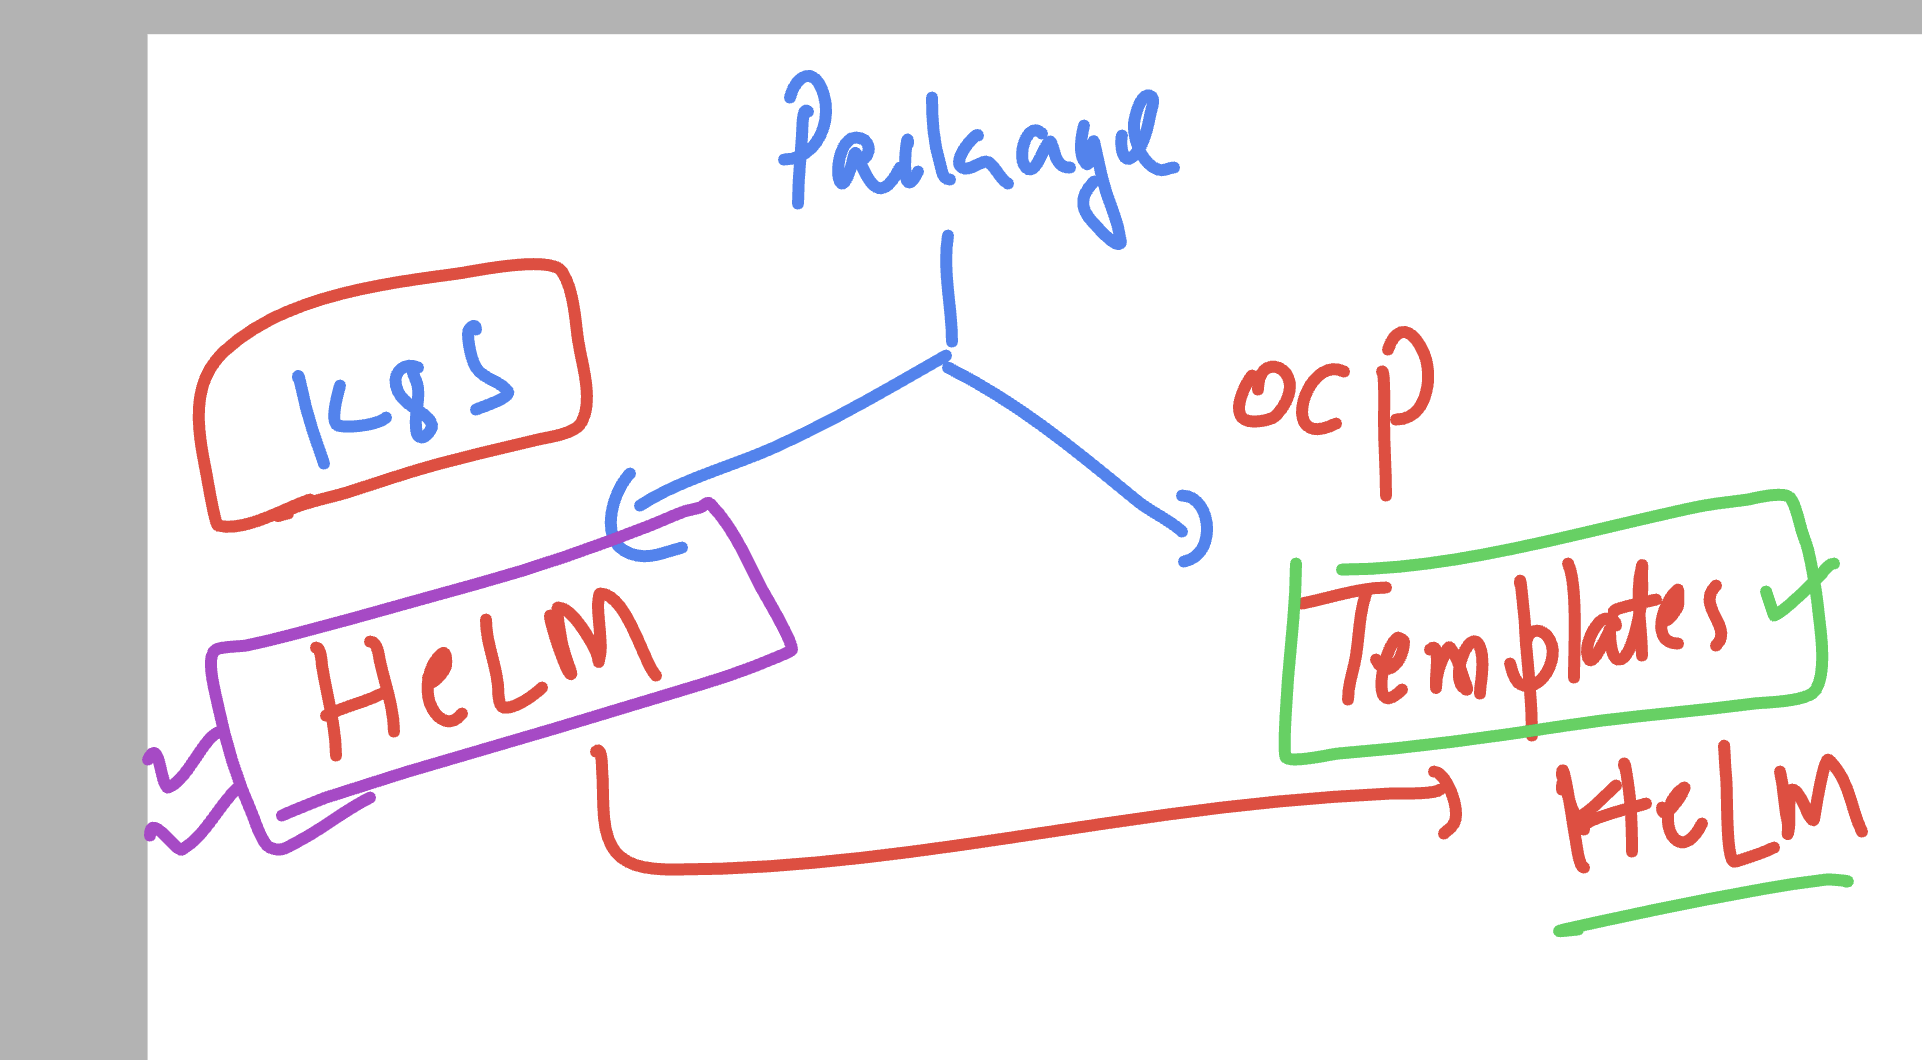 Package
K8S
OCP
HELM
Templates
HELM